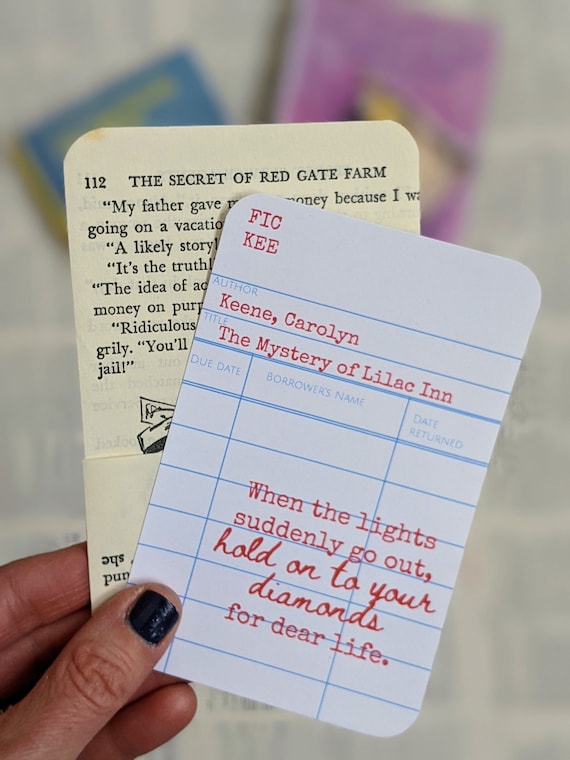 112 THE SECRET OF RED GATE FARM
"My father gave money because I wa
going on a vacatio
"A likely story!
"It's the truth!
"The idea of ac
money on purp
"Ridiculous
grily. "You'll
jail!"
she
pun
FIC
KEE
AUTHOR
Keene, Carolyn
TITLE
The Mystery of Lilac Inn
DUE DATE
BORROWER'S NAME
DATE
RETURNED
When the lights
suddenly go out,
hold on to your
diamonds
for dear life.